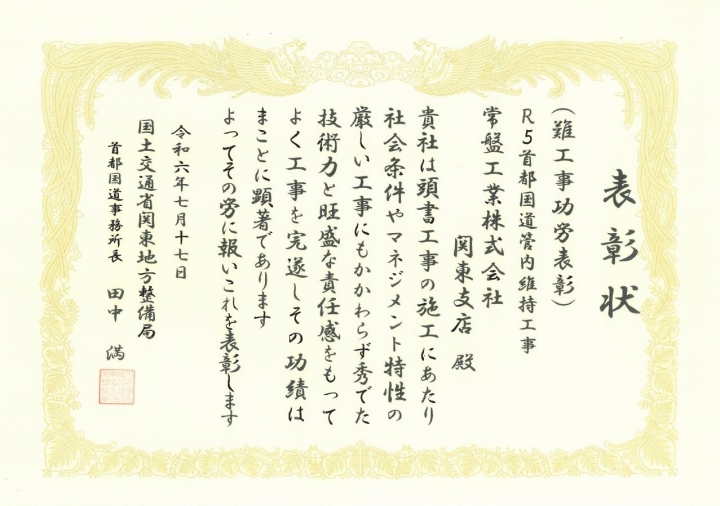 表彰状
(難工事功労表彰)
R5首都国道管内維持工事
常盤工業株式会社
関東支店 殿
貴社は頭書工事の施工にあたり
社会条件やマネジメント特性の
厳しい工事にもかかわらず秀でた
技術力と旺盛な責任感をもって
よく工事を完遂しその功績は
まことに顕著であります
よってその労に報いこれを表彰します
令和六年七月十七日
国土交通省関東地方整備局
首都国道事務所長 田中 満